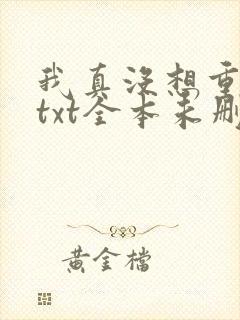 我真没想重
txt全本未删
黄金檔